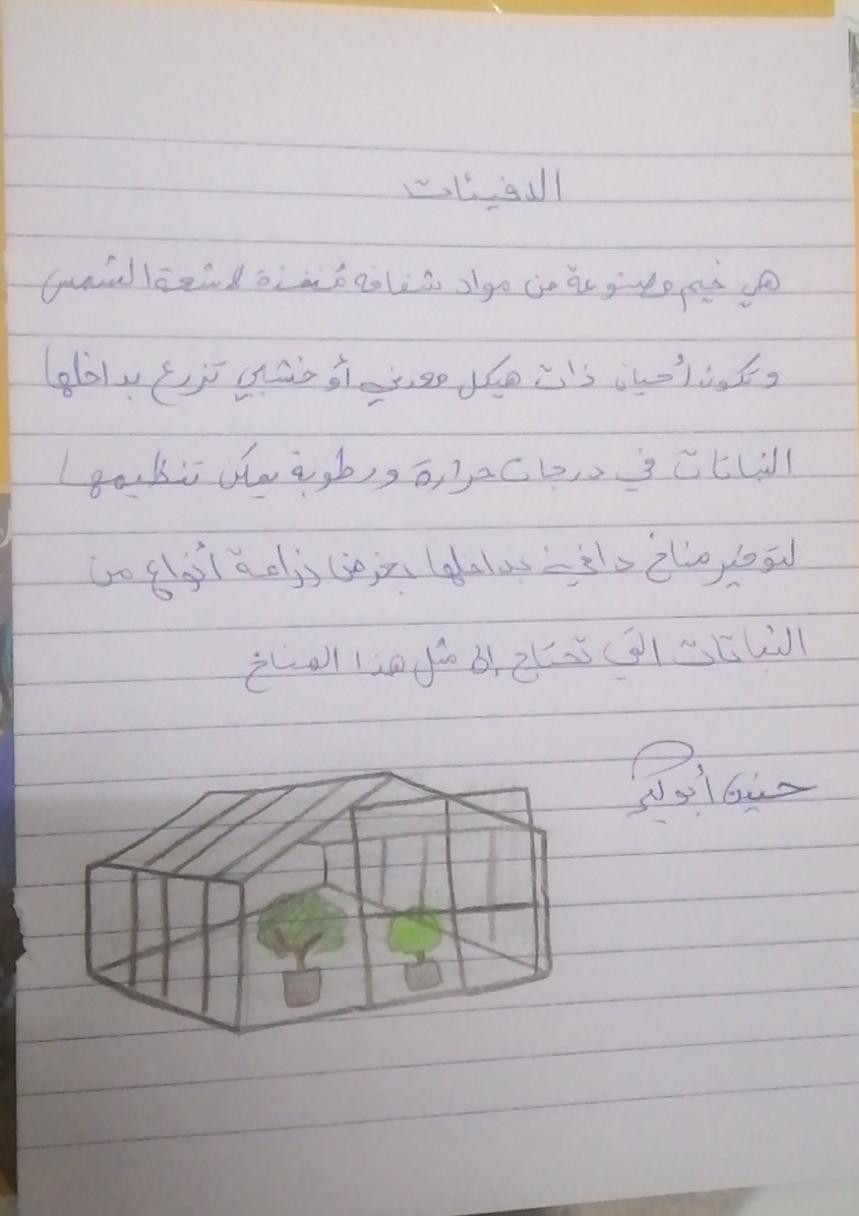 الدفيئات
هي خيم مصنوعة من مواد شفافه مُنفذة لاشعة الشمس
وتكون أحيان ذات هيكل معدني أو خشبي تزرع بداخلها
النباتات في درجات حرارة ورطوبة يمكن تنظيمها
لتوفير مناخ دافئ بداخلها بغرض زراعة أنواع من
النباتات التي تحتاج إلى مثل هذا المناخ
حنين أبو